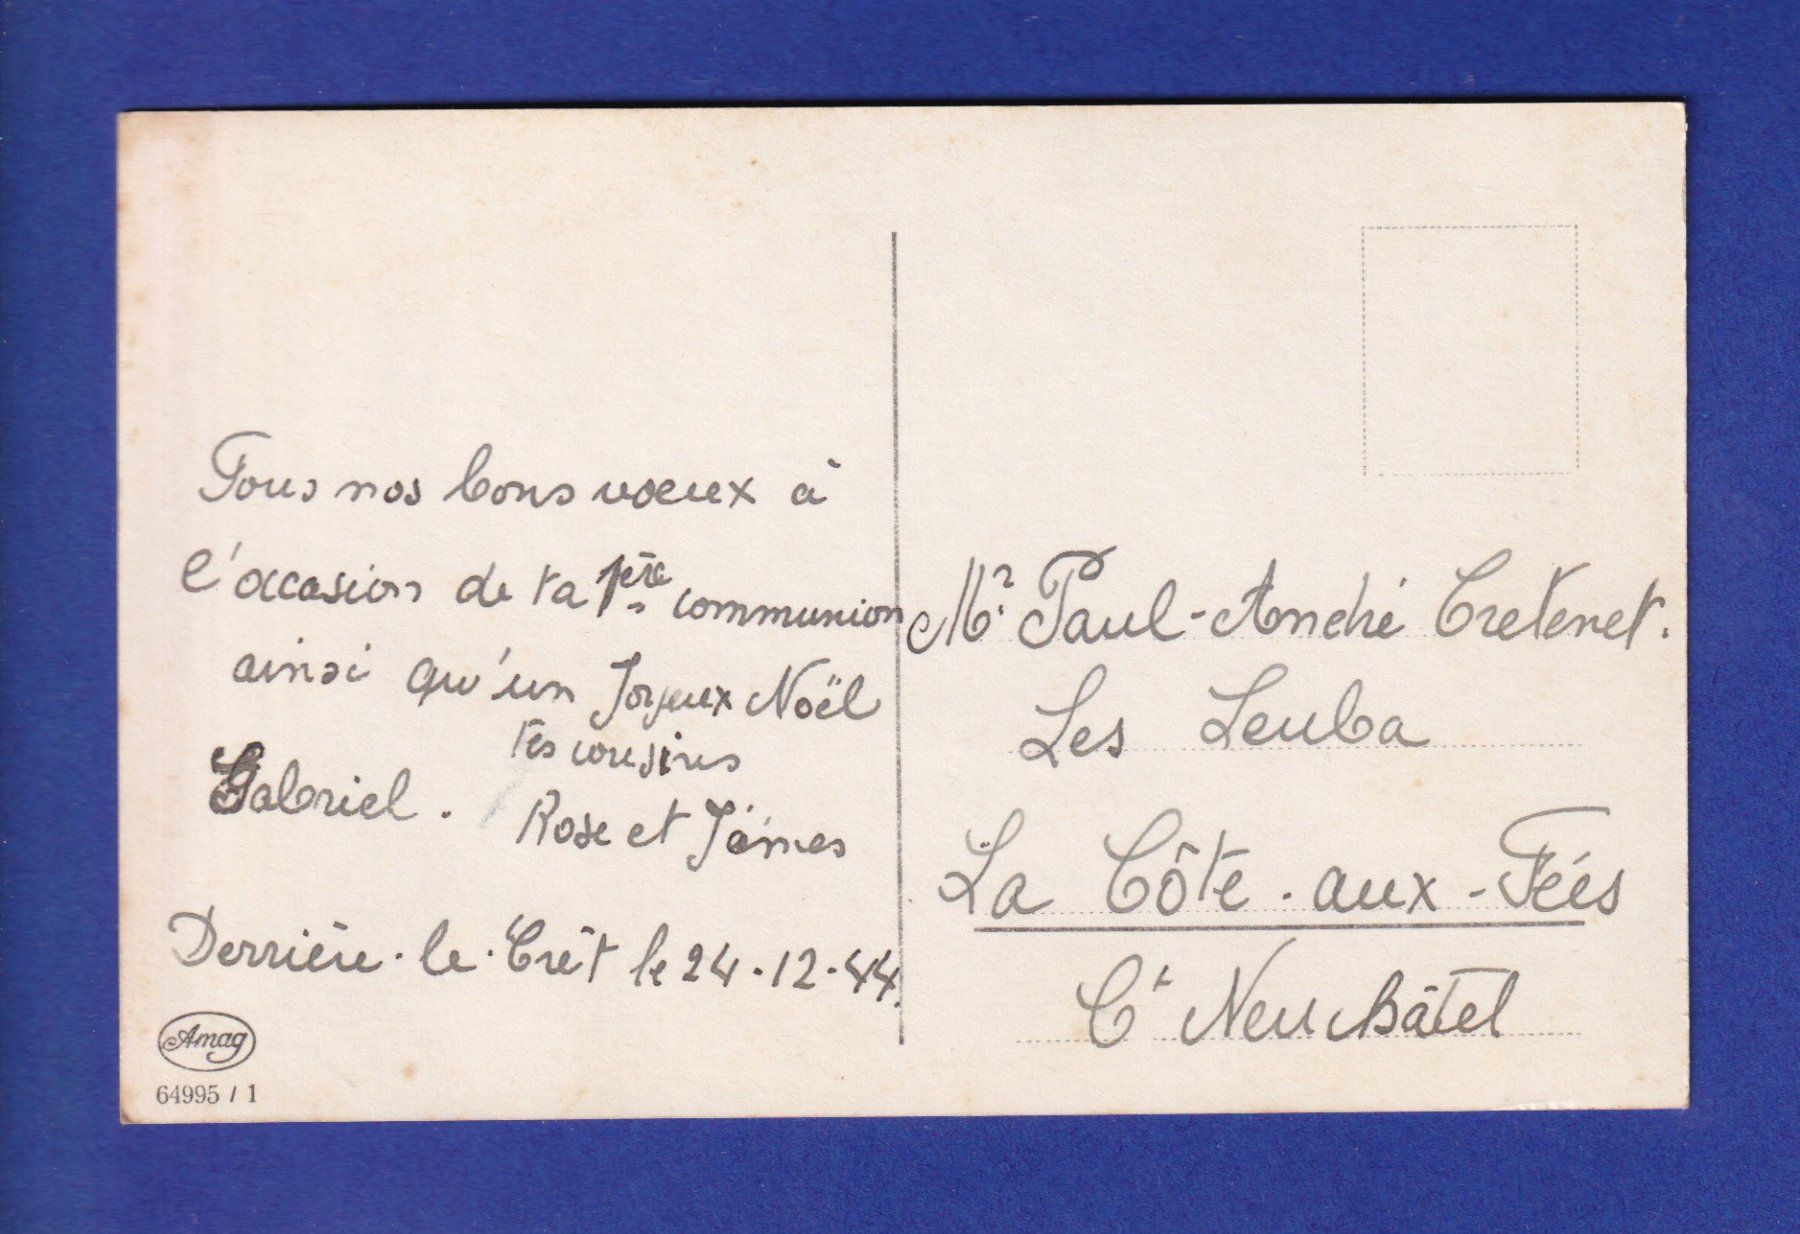 Tous nos bons voeux à
l'occasion de ta 1ère communion
ainsi qu'un Joyeux Noël
tes cousins
Gabriel.
Rose et James
Derrière-le-Crêt le 24-12-44.
Amag
64995 / 1
Mr. Paul-André Cretenet.
Les Leuba
La Côte-aux-Fées
Ct Neuchâtel